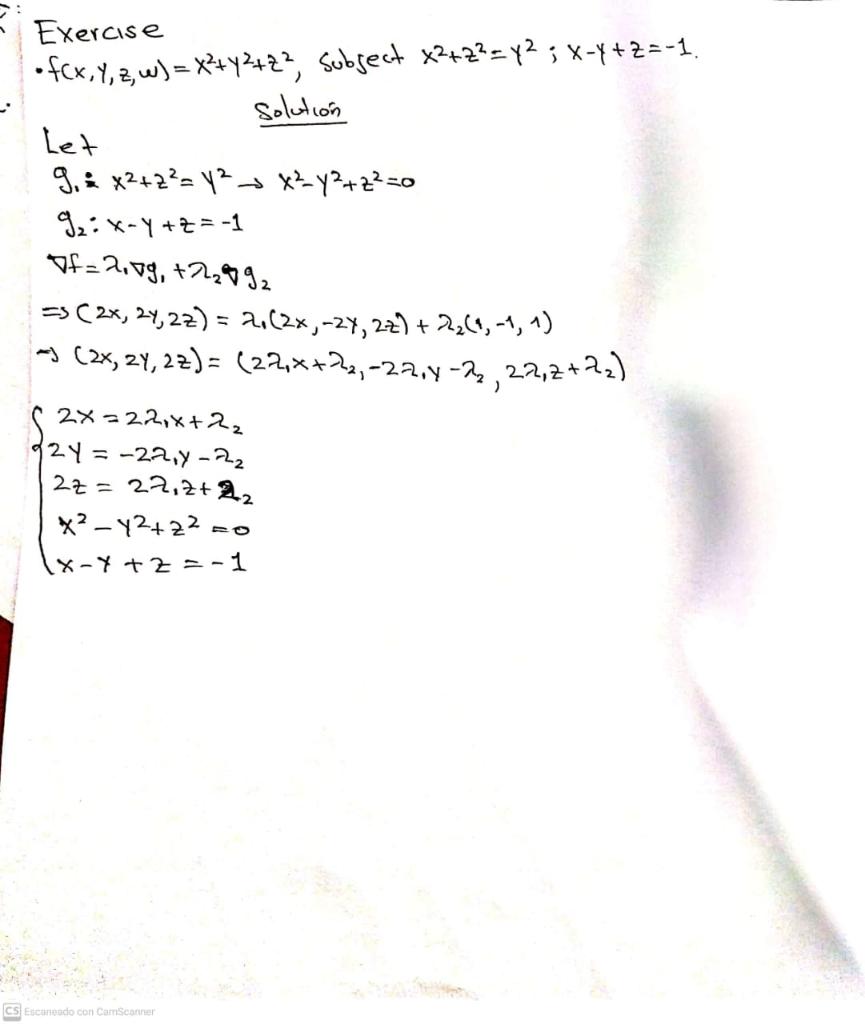 Exercise
• f(x,y,z,w) = x²+y²+z², Subject x²+z²=y² ; x-y+z=-1.
Solution
Let
g₁: x²+z²=y² → x²-y²+z²=0
g₂: x-y+z=-1
∇f=λ₁∇g₁+λ₂∇g₂
⇒ (2x, 2y, 2z) = λ₁(2x,-2y,2z) + λ₂(1,-1,1)
→ (2x, 2y, 2z) = (2λ₁x+λ₂, -2λ₁y-λ₂, 2λ₁z+λ₂)
2x = 2λ₁x+λ₂
2y = -2λ₁y-λ₂
2z = 2λ₁z+λ₂
x²-y²+z²=0
x-y+z=-1
CS Escaneado con CamScanner